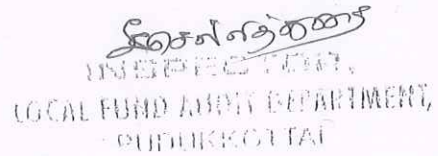 INSPECTOR,
LOCAL FUND AUDIT DEPARTMENT,
PUDUKKOTTAI